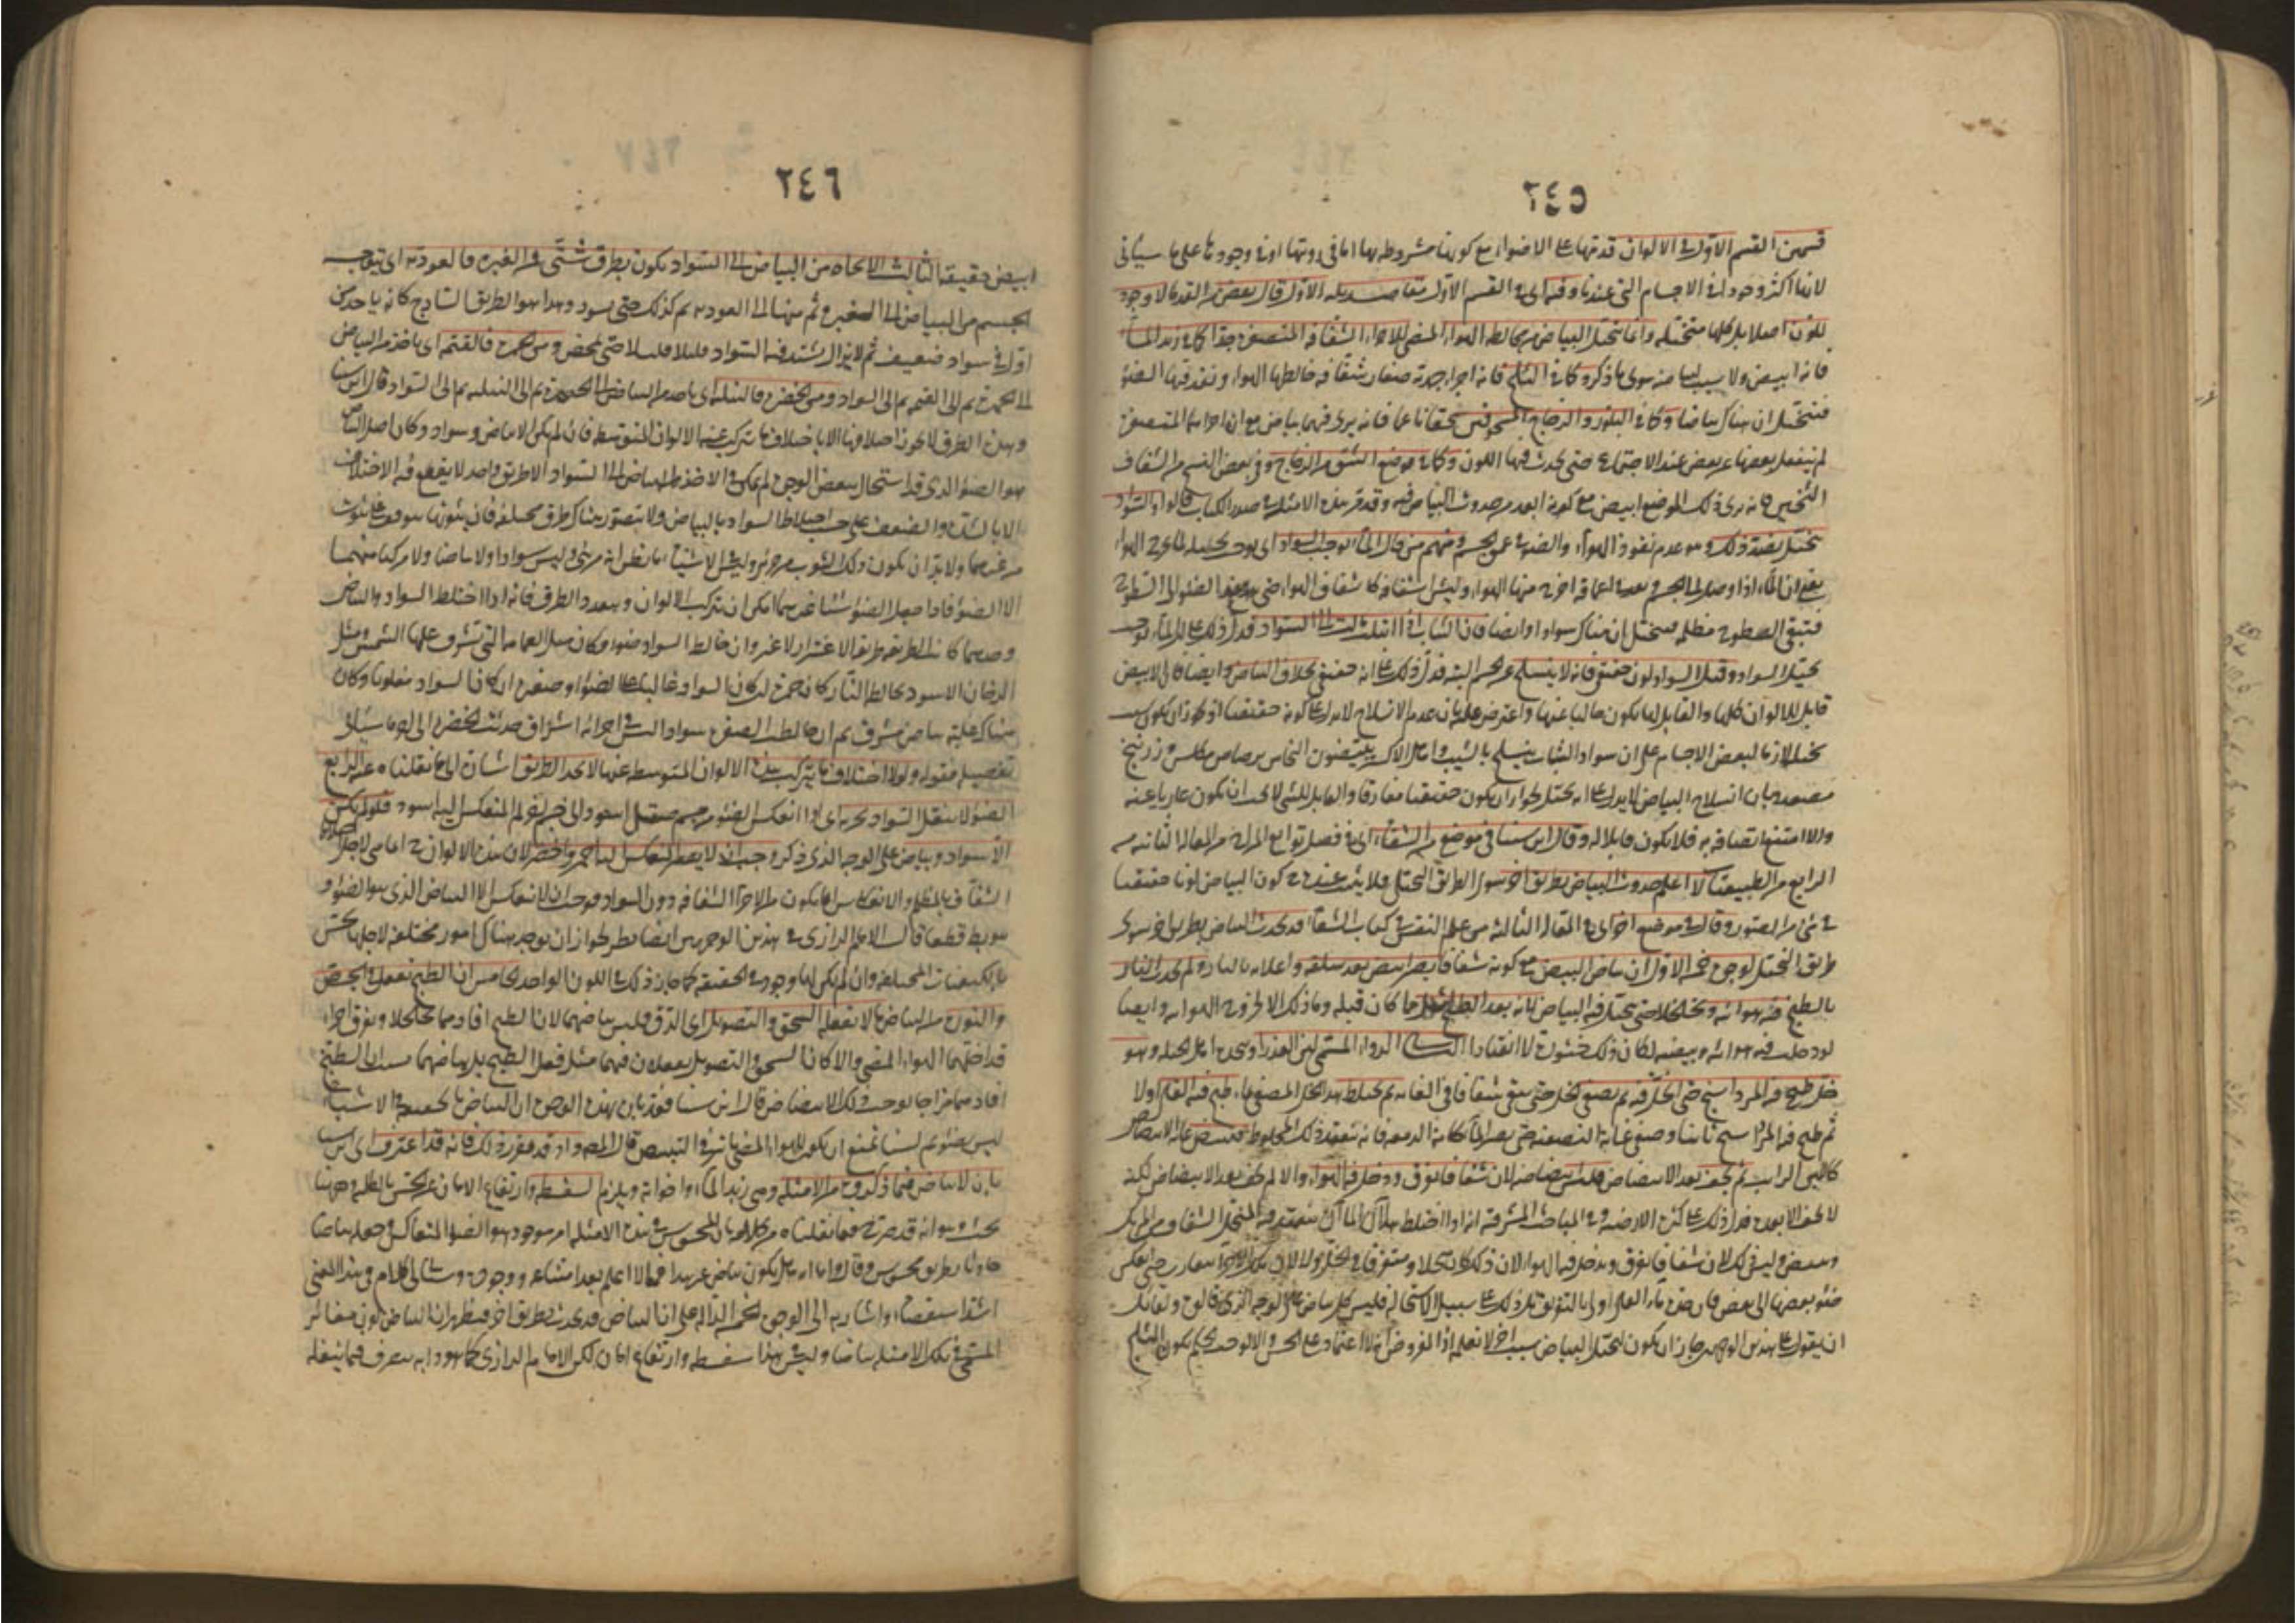 ٢٤٥
قسمين القسم الاول في الالوان قدمها على الاضواء مع كونها مشروطة بها اما في رؤيتها او في وجودها على ما سيأتي
لانها اكثر وجودا في الاجسام التي عندنا وفيه اي في القسم الاول مقاصد الاول قال بعض من القدماء لا وجود
للون اصلا بل كلها متخيلة وانما يتخيل البياض من مخالطة الهواء المضي للاجزاء الشفافة المتصغرة جدا كما في زبد الماء
فانه ابيض ولا سبب لبياضه سوى ما ذكر وكما في الثلج فانه اجزاء جمدية صغار شفافة خالطها الهواء ونفذ فيها الضوء
فيتخيل ان هناك بياضا وكما في البلور والزجاج المسحوقين سحقا ناعما فانه يرى فيهما بياض مع ان اجزاءهما المتصغرة
لم ينفعل بعضها عن بعض عند الاجتماع حتى يحدث فيها اللون وكما في موضع الشق من الزجاج وفي بعض النسخ من الشفاف
الثخين فانه يرى ذلك الموضع ابيض مع كونه ابعد من حدوث البياض فيه وقد مر هذه الامثلة في صدر الكتاب قالوا والسواد
يتخيل بضد ذلك وهو عدم نفوذ الهواء والضوء في عمق الجسم ومنهم من قال الماء يوجب السواد اي يوجب تخيله لما يخرج الهواء
يعني ان الماء اذا وصل الى الجسم ونفذ في اعماقه اخرج منها الهواء وليس اشفافه كاشفاف الهواء حتى ينفذ الضوء الى السطوح
فتبقى السطوح مظلمة فيتخيل ان هناك سوادا وايضا فان الثياب اذا ابتلت مالت الى السواد فدل ذلك على ان الماء يوجب
تخيل السواد وقيل السواد لون حقيقي فانه لا ينسلخ عن الجسم البتة فدل ذلك على انه حقيقي بخلاف البياض وايضا فان الابيض
قابل للالوان كلها والقابل لها يكون خاليا عنها واعترض عليه بان عدم الانسلاخ لا يدل على كونه حقيقيا اذ يجوز ان يكون سبب
تخيله لازما لبعض الاجسام على ان سواد الشباب ينسلخ بالشيب واهل الاكسير يبيضون النحاس برصاص مكلس وزرنيخ
مصعد وبان انسلاخ البياض لا يدل على انه تخيل لجواز ان يكون حقيقيا مفارقا والقابل للشيء لا يجب ان يكون عاريا عنه
والا امتنع اتصافه به فلا يكون قابلا له وقال ابن سينا في موضع من الشفاء اي في فصل توابع المزاج من المقالة الثانية من
الرابع من الطبيعيات لا اعلم حدوث البياض بطريق اخر سوى الطريق التخيل فلا يثبت عنده ح كون البياض لونا حقيقيا
في شيء من الصور وقال في موضع اخر اي في المقالة الثالثة من علم النفس في كتاب الشفاء قد يحدث البياض بطريق اخر سوى
طريق التخيل لوجوه خمسة الاول ان بياض البيض مع كونه شفافا يصير ابيض بعد سلقه واغلائه بالماء ولم تحدث النار
بالطبخ فيه هوائية وتخلخلا حتى يتخيل فيه البياض لانه بعد الطبخ اثقل مما كان قبله وما ذلك الا لخروج الهوائية وايضا
لو دخلت فيه هوائية وبيضته لكان ذلك خثورة لا انعقادا الثاني الدواء المسمى لبن العذراء يتخذه اهل الحيلة وهو
خل طبخ فيه المرداسنج حتى انحل فيه ثم يصفى الخل حتى يبقى شفافا في الغاية ثم يخلط هذا الخل المصفى بماء طبخ فيه القلى اولا
ثم طبخ فيه المرداسنج ثانيا وصفى غاية التصفية حتى يصير الماء كانه الدمعة فانه ينعقد ذلك المخلوط فيبيض غاية الابيضاض
كاللبن الرائب ثم يجف بعد الابيضاض فليس ابيضاضه لان شفافا تفرق ودخل فيه الهواء والا لم يجف بعد الابيضاض لكنه
لا يجف الا بعده فدل ذلك على كثرة الارضية وفي المباحث المشرقية انه اذا اختلط هذان الماآن ينعقد فيه المنحل الشفاف من المرتك
ويبيض وليس ذلك لان شفافا تفرق ودخل فيه الهواء لان ذلك كان منحلا ومتفرقا في الخل ولا لان تلك الاجزاء تقاربت حتى انعكس
ضوء بعضها الى بعض فان حدة ماء القلى اولى بالتفريق بل ذلك على سبيل الاستحالة فليس كل بياض على الوجه الذي قالوه ولقائل
ان يقول على هذين الوجهين جاز ان يكون لتخيل البياض سبب اخر لا نعلمه اذ المفروض انه لا اعتماد على الحس والا لوجب الحكم بكون الثلج
٢٤٦
ابيض حقيقة الثالث الاتجاه من البياض الى السواد يكون بطرق شتى فمن الغبرة فالعودية اي يتوجه
الجسم من البياض الى الغبرة ثم منها الى العودية ثم كذلك حتى يسود وهذا هو الطريق الساذج كانه ياخذ من
اول في سواد ضعيف ثم لا يزال يشتد فيه السواد قليلا قليلا حتى يمحض ومن الحمرة فالقتمة اي ياخذ من البياض
الى الحمرة ثم الى القتمة ثم الى السواد ومن الخضرة فالنيلية اي ياخذ من البياض الى الخضرة ثم الى النيلية ثم الى السواد قال ابن سينا
وهذه الطرق لا يجوز اختلافها الا باختلاف ما تتركب عنه الالوان المتوسطة فان لم يكن الا بياض وسواد وكان اصل البياض
هو الضوء الذي قد استحال ببعض الوجوه لم يمكن في الاخذ من البياض الى السواد الا طريق واحد لا يقع فيه الاختلاف
الا بالشدة والضعف على حسب اختلاط السواد بالبياض ولا يتصور هناك طرق مختلفة فان ثبوتها موقوف على شوب
من غيرهما ولا بد ان يكون ذلك الشوب من مرئي وليس في الاشياء ما يظن انه مرئي وليس سوادا ولا بياضا ولا مركبا منهما
الا الضوء فاذا جعل الضوء شيئا غيرهما امكن ان تتركب الالوان وتتعدد الطرق فانه اذا اختلط السواد والبياض
وحدهما كانت الطريقة طريقة الاغبرار لا غير وان خالط السواد ضوء فكان مثل الغمامة التي تشرق عليها الشمس ومثل
الدخان الاسود تخالطه النار كان حمرة ان كان السواد غالبا على الضوء او صفرة ان كان السواد مغلوبا وكان
هناك غلبة بياض مشرق ثم ان خالطت الصفرة سوادا ليس في اجزائه اشراق حدثت الخضرة الى اخر ما سيأتي
تفصيله فقوله ولولا اختلاف ما يتركب منه الالوان المتوسطة عنها لاتحد الطريق اشارة الى ما نقلناه عنه الرابع
الضوء لا ينقل السواد تجربة اي اذا انعكس الضوء من جسم صقيل اسود الى جسم اخر لم ير المنعكس اليه اسود فلو لم يكن
الا سواد وبياض على الوجه الذي ذكر وجب ان لا يصير المنعكس اليه احمر واخضر لان هذه الالوان ح انما هي لاختلاط
الشفاف بالمظلم والانعكاس انما يكون من الاجزاء الشفافة دون السواد فوجب ان لا ينعكس الا البياض الذي هو الضوء وهو
باطل قطعا قال الامام الرازي في هذين الوجهين ايضا نظر لجواز ان يوجد هناك امور مختلفة لاجلها يحس
بالكيفيات المختلفة وان لم يكن لها وجود في الحقيقة كما جاز ذلك في اللون الواحد الخامس ان الطبخ يفعل في الجص
والنورة من البياض ما لا يفعله السحق والتصويل اي الدق فليس بياضهما لان الطبخ افادهما تخلخلا وتفرق اجزاء
قد اختلها الهواء المضي والا كان السحق والتصويل يفعلان فيهما مثل فعل الطبخ بل بياضهما بسبب ان الطبخ
افادهما مزاجا يوجب ذلك الابيضاض قال ابن سينا فقد بان بهذه الوجوه ان البياض بالحقيقة في الاشياء
ليس بضوء ثم لسنا نمنع ان يكون للهواء المضي تاثير في التبييض قال المص واذ قد تقرر ذلك فانه قد اعترف اي ابن سينا
بان لا بياض فيما ذكروه من الامثلة وهي زبد الماء واخواته ويلزم السفسطة وارتفاع الامان عن الحس بالكلية وههنا
بحث وهو انه قد صرح فيما نقلناه من كلامه بان المحسوس في هذه الامثلة امر موجود هو الضوء المتعاكس جعله بياضا
حادثا بطريق محسوس وقال واما انه هل يكون بياض غير هذا فمما لا اعلم بعد امتناعه ووجوده وسيأتي الكلام في هذا المعنى
اشد استقصاء واشار به الى الوجوه الخمسة الدالة على ان البياض قد يحدث بطريق اخر فيظهر ان البياض لون مغاير
المسمى في تلك الامثلة بياضا وليس هذا سفسطة وارتفاع امان لكن الامام الرازي كما هو دابه يتصرف فيما ينقله